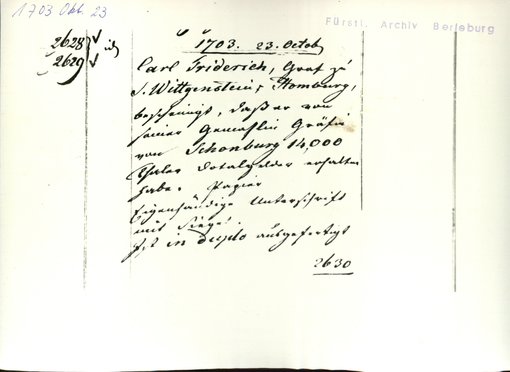 1703 Okt. 23
Fürstl. Archiv Berleburg
2628
2629
1703. 23. Octob
Carl Friderich, Graf zu
S. Wittgenstein, Homburg,
bescheinigt, daß er von
seiner Gemahlin Gräfin
von Schönburg 14,000
Thaler Dotalgelder erhalten
habe. Papier
Eigenhändige Unterschrift
mit Siegel.
Ist in duplo ausgefertigt
2630